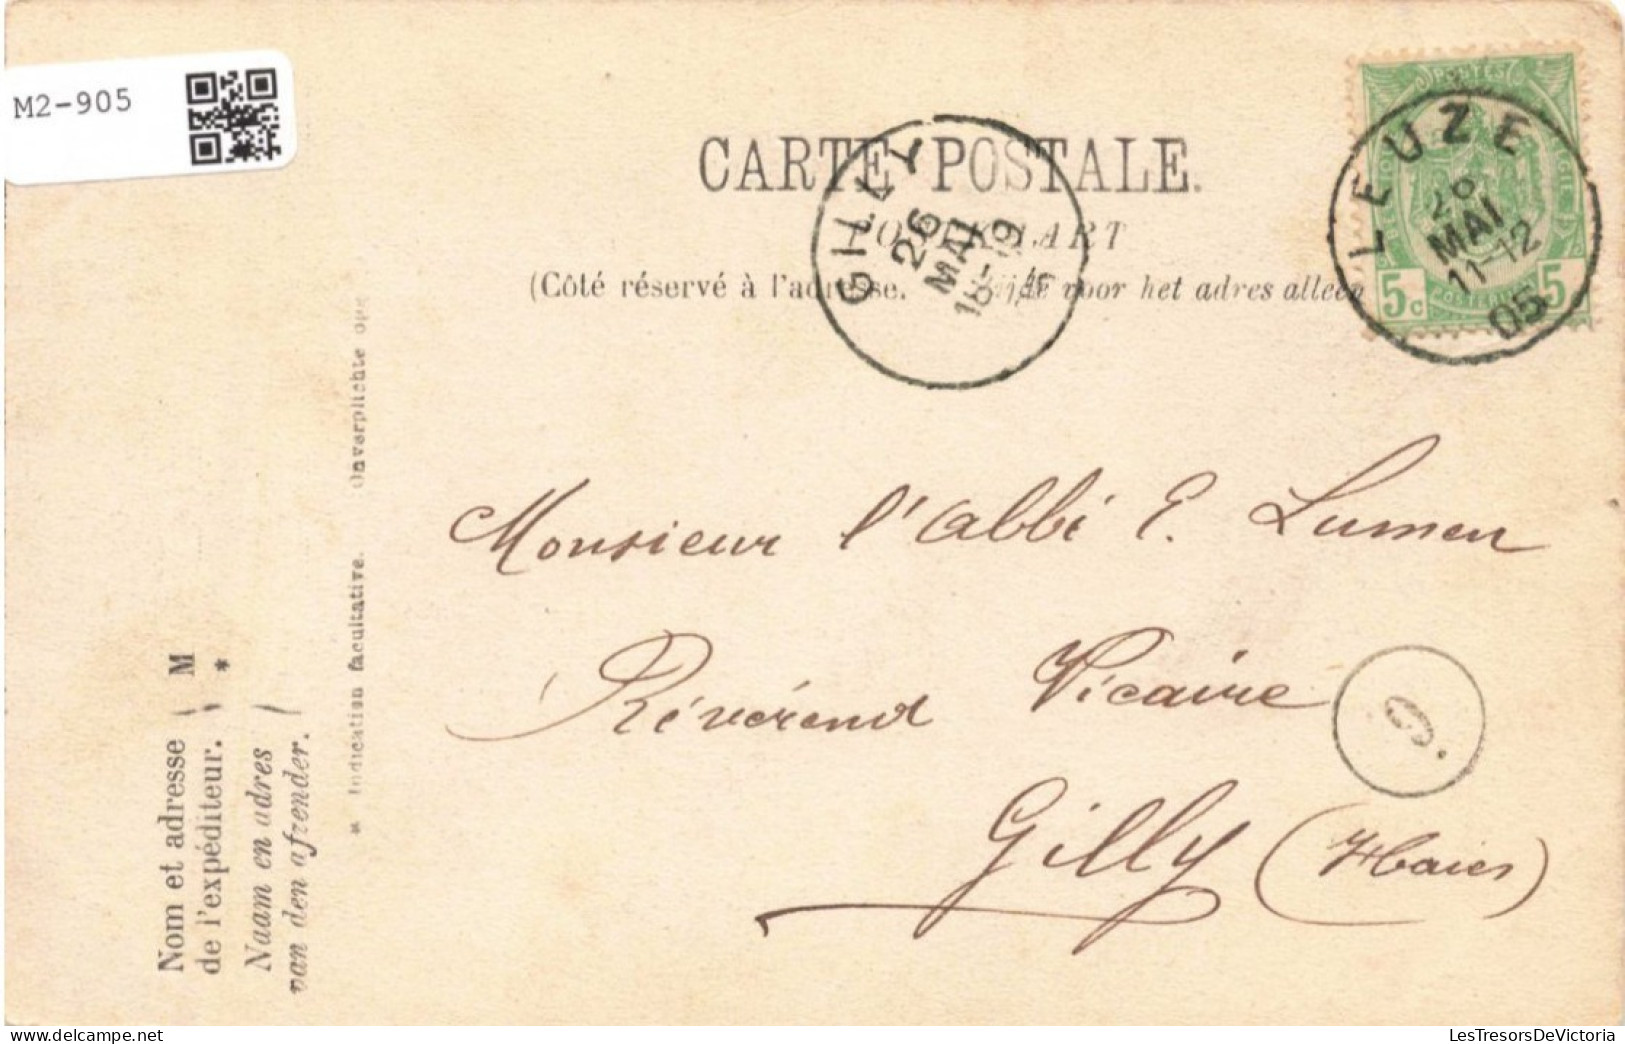 M2-905
CARTE POSTALE.
(Côté réservé à l'adresse. Zijde voor het adres alleen
GILLY
26
MAI
18-19
LEUZE
26
MAI
11-12
05
POSTES
5c
5
Monsieur l'abbé E. Lumen
Révérend Vicaire
Gilly (Haies)
Nom et adresse
de l'expéditeur.
M
*
Naam en adres
van den afzender.
* Indication facultative. Onverplichte
delcampe.net
LesTresorsDeVictoria